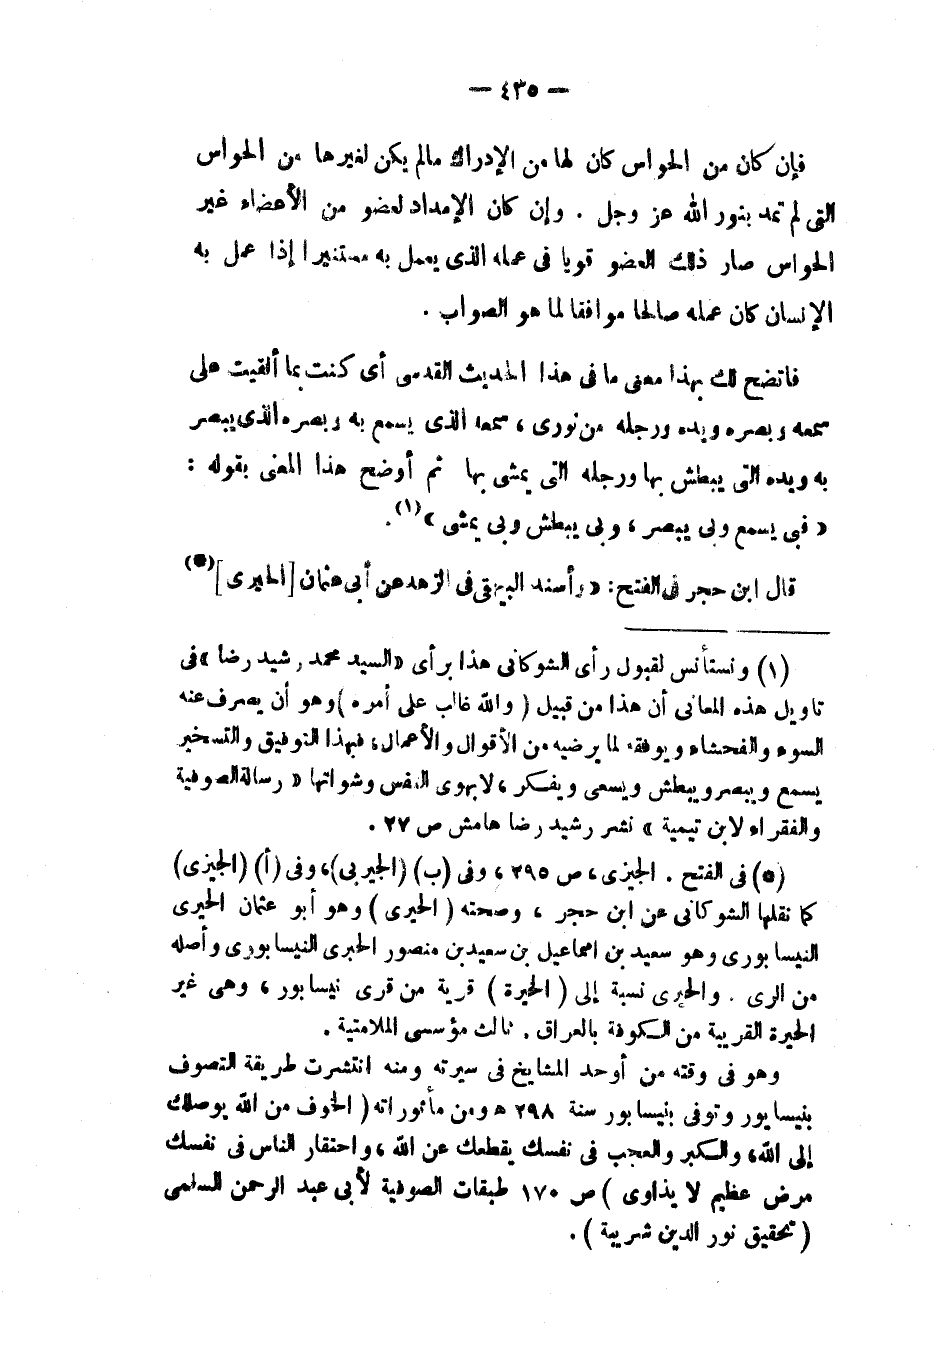 — ٤٣٥ —
فإن كان من الحواس كان لها من الإدراك مالم يكن لغيرها من الحواس
التى لم تمد بنور الله عز وجل . وإن كان الإمداد لعضو من الأعضاء غير
الحواس صار ذلك العضو قويا فى عمله الذى يعمل به مستنيرا إذا عمل به
الإنسان كان عمله صالحا موافقا لما هو الصواب .
فاتضح لك بهذا معنى ما فى هذا الحديث القدسى أى كنت بما ألقيت على
سمعه وبصره ويده ورجله من نورى ، سمعه الذى يسمع به وبصره الذى يبصر
به ويده التى يبطش بها ورجله التى يمشى بها ثم أوضح هذا المعنى بقوله :
« فبى يسمع وبى يبصر ، وبى يبطش وبى يمشى »(١) .
قال ابن حجر فى الفتح : « وأسند البيهقى فى الزهد عن أبى عثمان [الحيرى](*)
(١) ونستأنس لقبول رأى الشوكانى هذا برأى «السيد محمد رشيد رضا » فى
تاويل هذه المعانى أن هذا من قبيل ( والله غالب على أمره ) وهو أن يصرف عنه
السوء والفحشاء ويوفقه لما يرضيه من الأقوال والأعمال، فبهذا التوفيق والتسخير
يسمع ويبصر ويبطش ويسعى ويفكر ، لا بهوى النفس وشواتها « رسالة الصوفية
والفقراء لابن تيمية » نشر رشيد رضا هامش ص ٢٧ .
(*) فى الفتح . الجيزى ، ص ٢٩٥ ، وفى (ب) (الجيربى)، وفى (أ) (الجيزى)
كما نقلها الشوكانى عن ابن حجر ، وصحته ( الحيرى ) وهو أبو عثمان الحيرى
النيسابورى وهو سعيد بن اسماعيل بن سعيد بن منصور الحيرى النيسابورى وأصله
من الرى . والحيرى نسبة إلى ( الحيرة ) قرية من قرى نيسابور ، وهى غير
الحيرة القريبة من الكوفة بالعراق . ثالث مؤسسى الملامتية .
وهو فى وقته من أوحد المشايخ فى سيرته ومنه انتشرت طريقة التصوف
بنيسابور وتوفى بنيسابور سنة ٢٩٨ ه ومن مأثوراته ( الخوف من الله يوصلك
إلى الله، والكبر والعجب فى نفسك يقطعك عن الله ، واحتقار الناس فى نفسك
مرض عظيم لا يداوى ) ص ١٧٠ طبقات الصوفية لأبى عبد الرحمن السلمى
( تحقيق نور الدين شريبة ) .